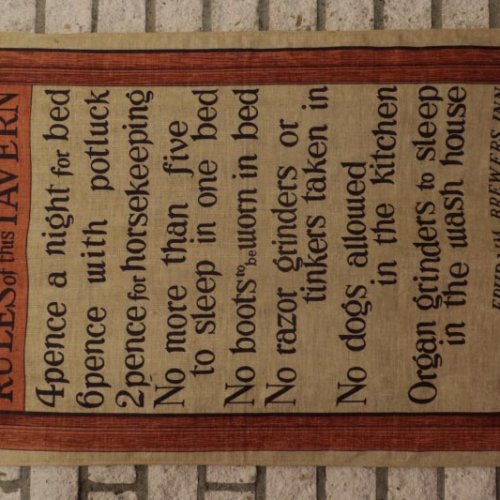 RULES of this TAVERN
4pence a night for bed
6pence with potluck
2pence for horsekeeping
No more than five
to sleep in one bed
No boots to be worn in bed
No razor grinders or
tinkers taken in
No dogs allowed
in the kitchen
Organ grinders to sleep
in the wash house